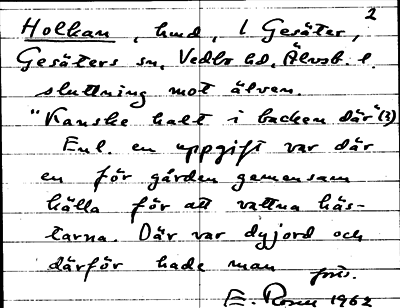 2
Holkan, hmd, 1 Gesäter,
Gesäters sn, Vedbo hd, Älvsb. l.
sluttning mot älven.
"Kanske halt i backen där" (3)
Enl. en uppgift var där
en för gården gemensam
källa för att vattna häs-
tarna. Där var dyjord och
därför hade man forts.
E. Rosen 1962